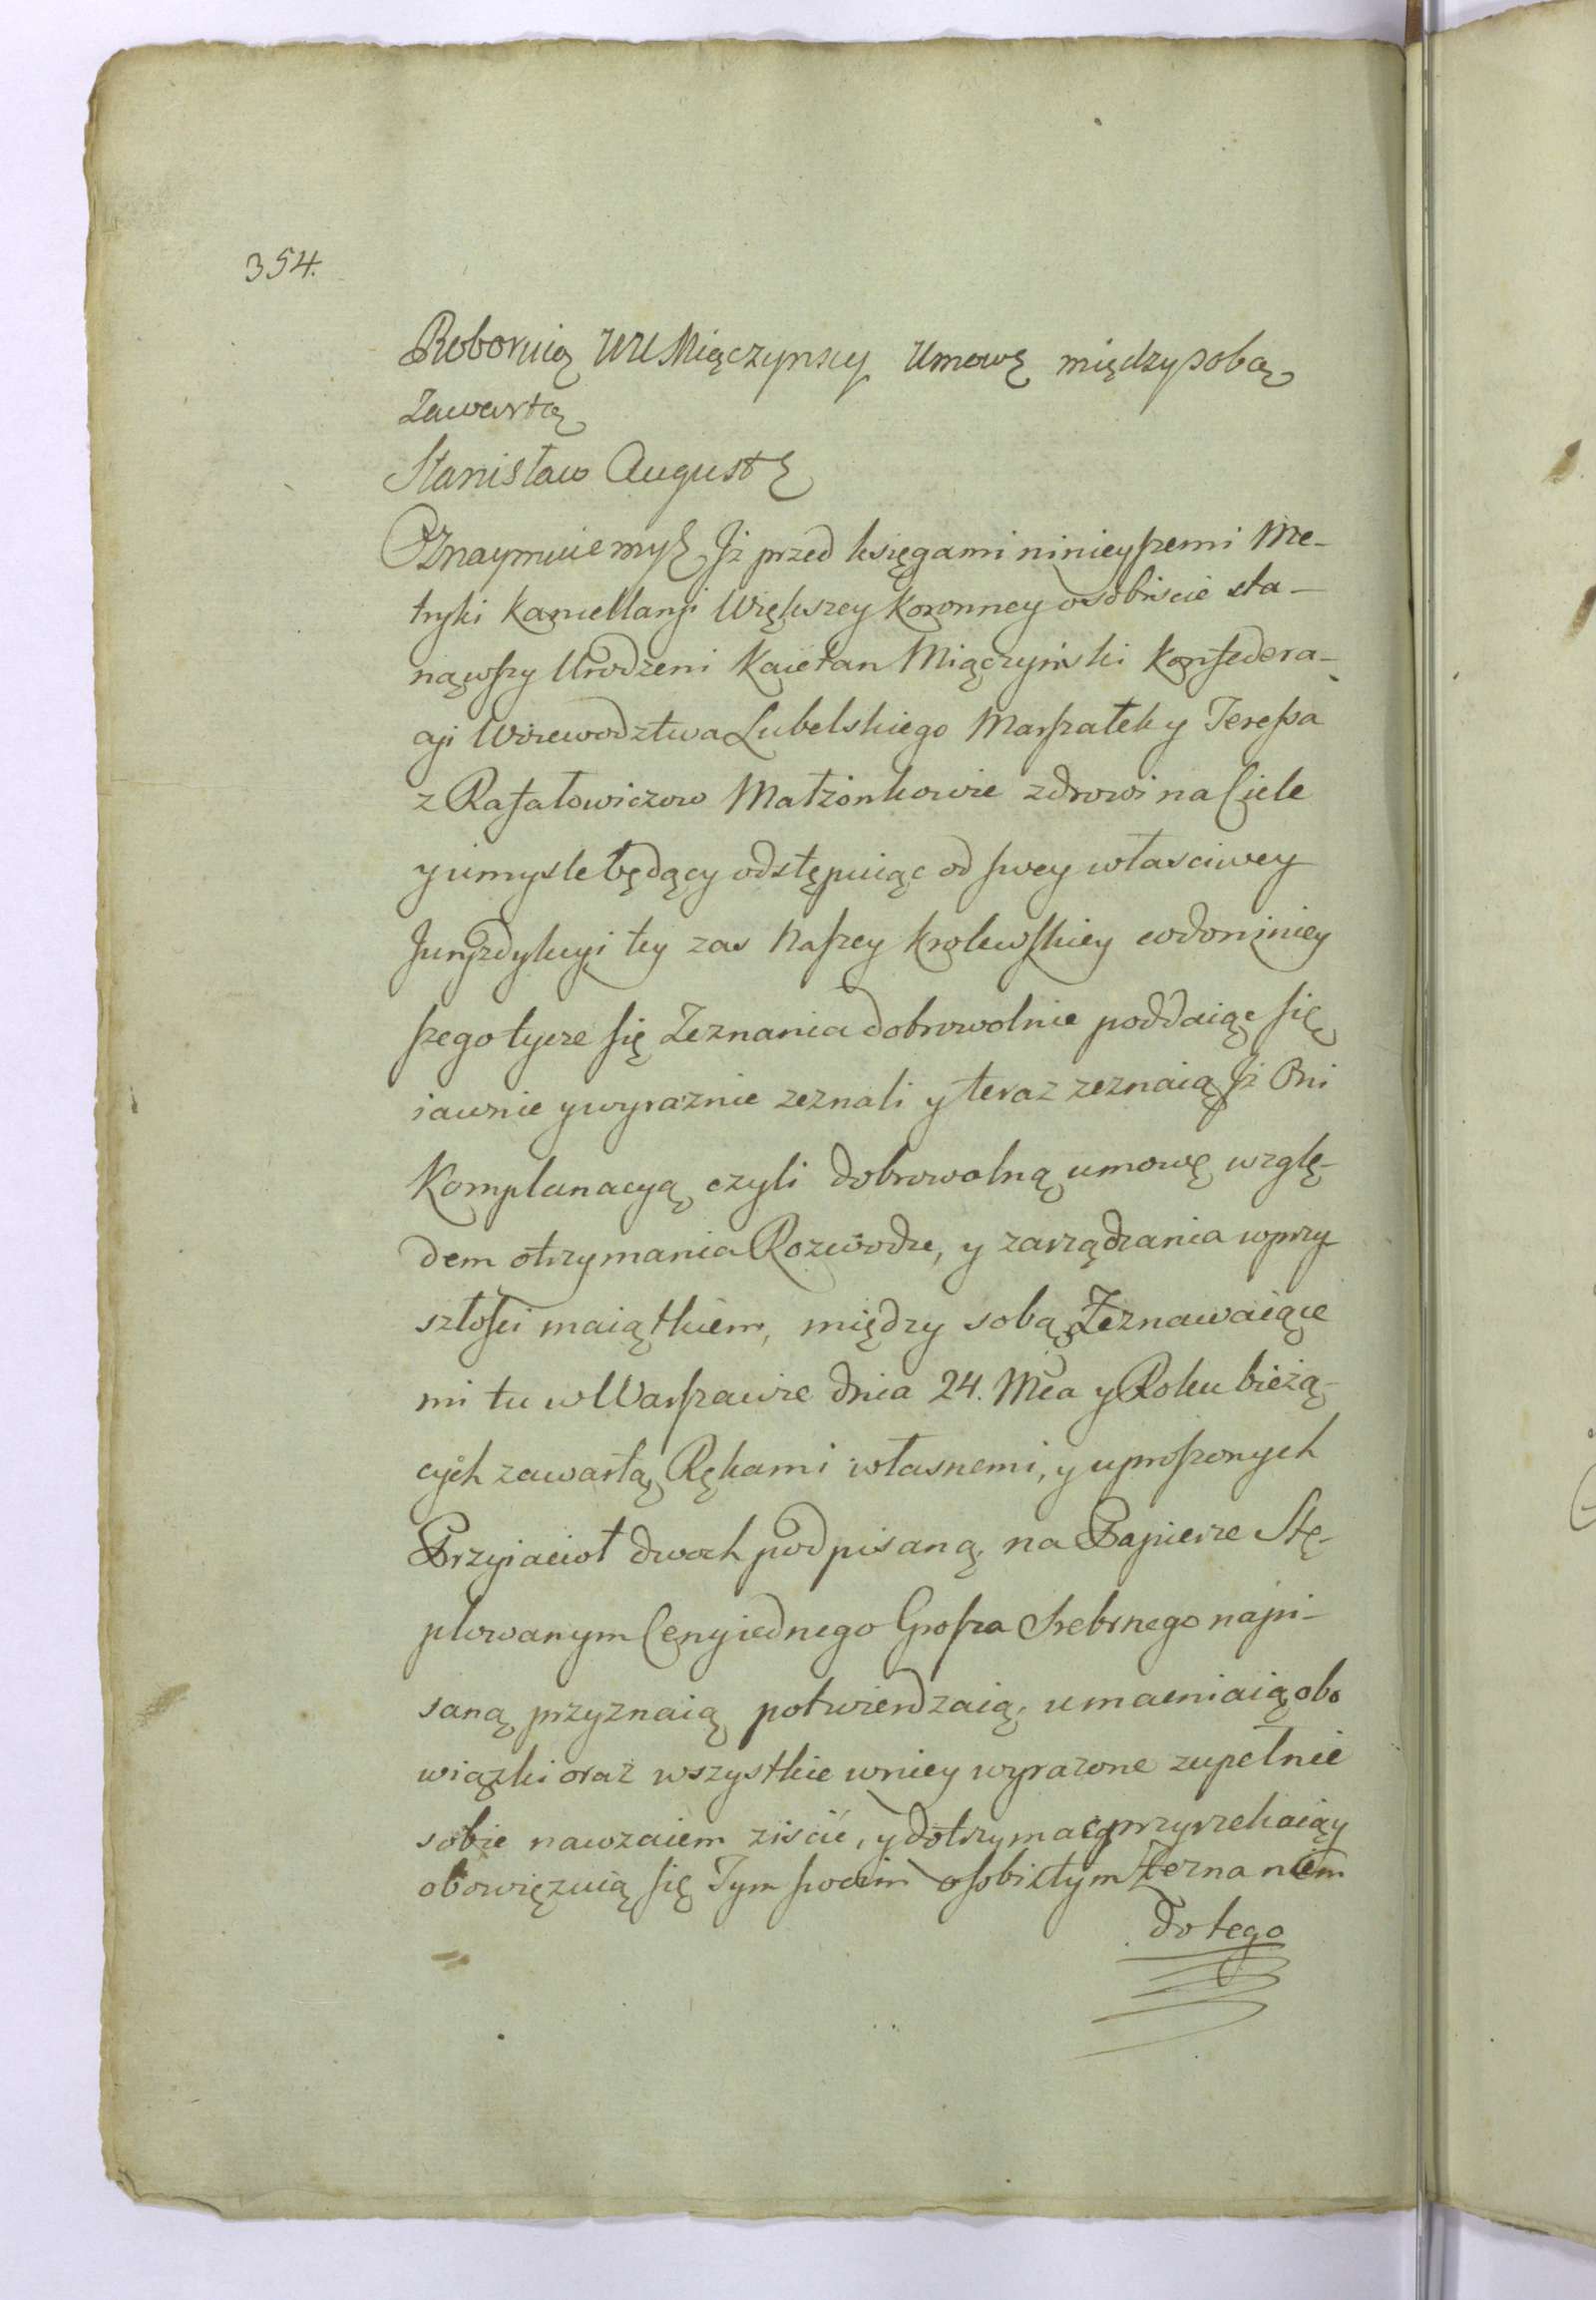 354.
Roboruią UU Miączynscy Umowę między sobą
Zawartą
Stanisław August &
Oznaymuiemy & Jż przed księgami ninieyszemi Me-
tryki Kancellaryi Większey Koronney osobiscie sta-
nąwszy Urodzeni Kaietan Miączyński Konfedera-
cyi Woiewodztwa Lubelskiego Marszałek y Teressa
z Rafałowiczow Małżonkowie zdrowi na Ciele
y umysle będący odstępuiąc od swey własciwey
Juryzdykcyi tey zas Naszey Krolewskiey co do niniey
szego tycze się Zeznania dobrowolnie poddaiąc się
iawnie y wyraznie zeznali y teraz zeznaią Jż Oni
Komplanacyą czyli dobrowolną umowę wzglę-
dem otrzymania Rozwodu, y zarządzania w przy
szłosci maiątkiem, między sobą Zeznawaiące
mi tu w Warszawie dnia 24. Mca y Roku bieżą-
cych zawartą, Rękami własnemi, y uproszonych
Przyiacioł dwoch podpisaną, na Papierze Stę-
plowanym Ceny iednego Grosza Srebrnego napi-
saną przyznaią potwierdzaią, umacniaią obo
wiązki oraz wszystkie w niey wyrazone zupełnie
sobie nawzaiem ziscić, y dotrzymać przyrzekaią y
obowięzuią się Tym swoim osobistym Zeznaniem
do tego